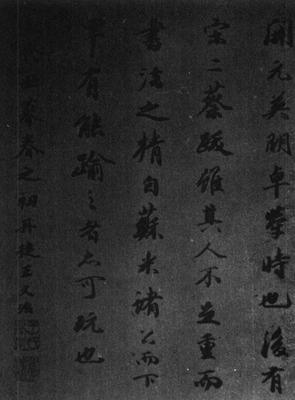 開元英明卓犖時也後有
宋二蔡跋雖其人不足重而
書法之精自蘇米諸公而下
罕有能踰之者尤可玩也
暮春之初丹徒王文治